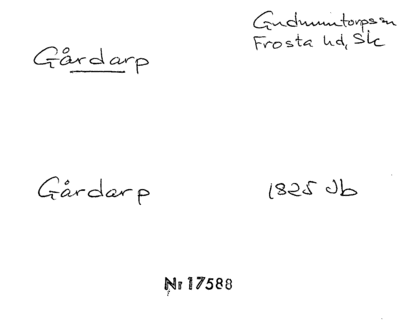 Gudmuntorps sn
Frosta hd, Sk
Gårdarp
Gårdarp
1825 Jb
Nr 17588